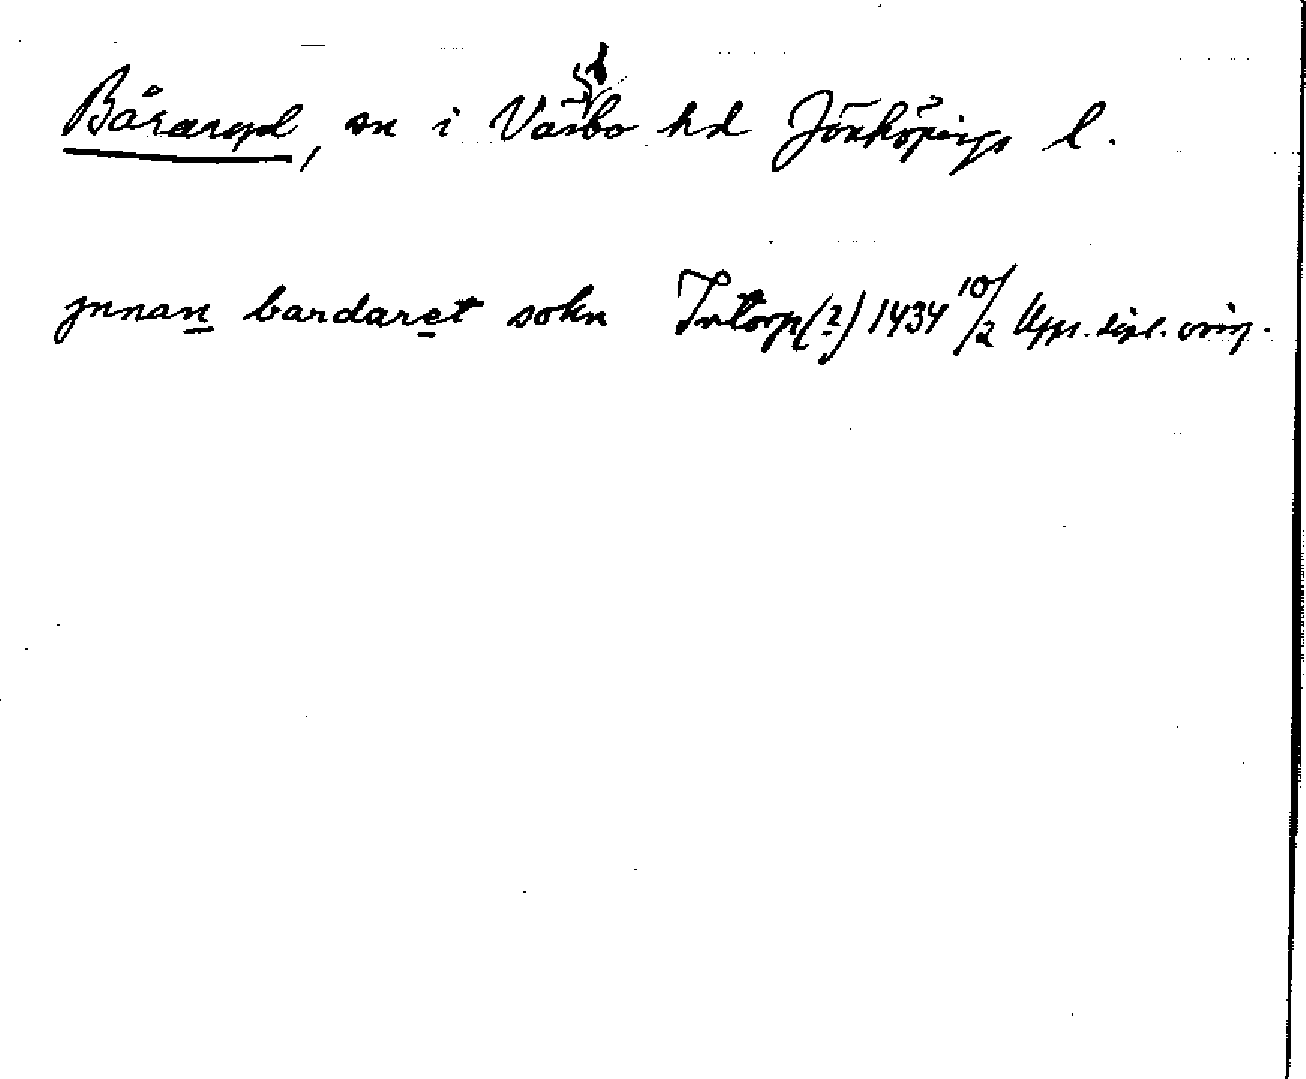 Båraryd, sn i Västbo hd Jönköpings l.
jnnan bardaret sokn Intorp(?) 1434 10/2 Upps. dipl. orig.